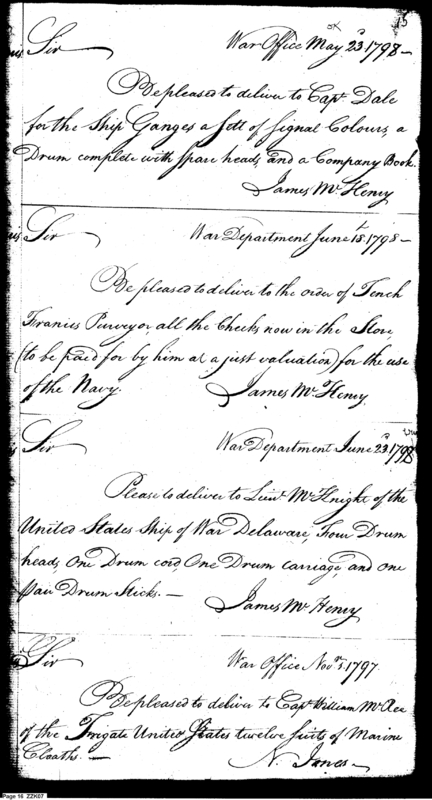 15
Sir War Office May 23d 1798 —
Be pleased to deliver to Capt Dale
for the Ship Ganges a Sett of Signal Colours, a
Drum complete with spare heads, and a Company Book.
James McHenry
Sir War Department June 18th 1798 —
Be pleased to deliver to the order of Tench
Francis Purveyor, all the Checks now in the Store,
(to be paid for by him at a just valuation) for the use
of the Navy. James McHenry.
Sir War Department June 23d 1798
Please to deliver to Lieut McKnight of the
United States Ship of War Delaware, Four Drum
heads, One Drum cord, One Drum carriage, and one
Pair Drum Sticks. — James McHenry
Sir War Office Novr 3. 1797
Be pleased to deliver to Capt William McRee
of the Frigate United States twelve suits of Marine
Cloaths. — N. Jones —
Page 16 ZZK07